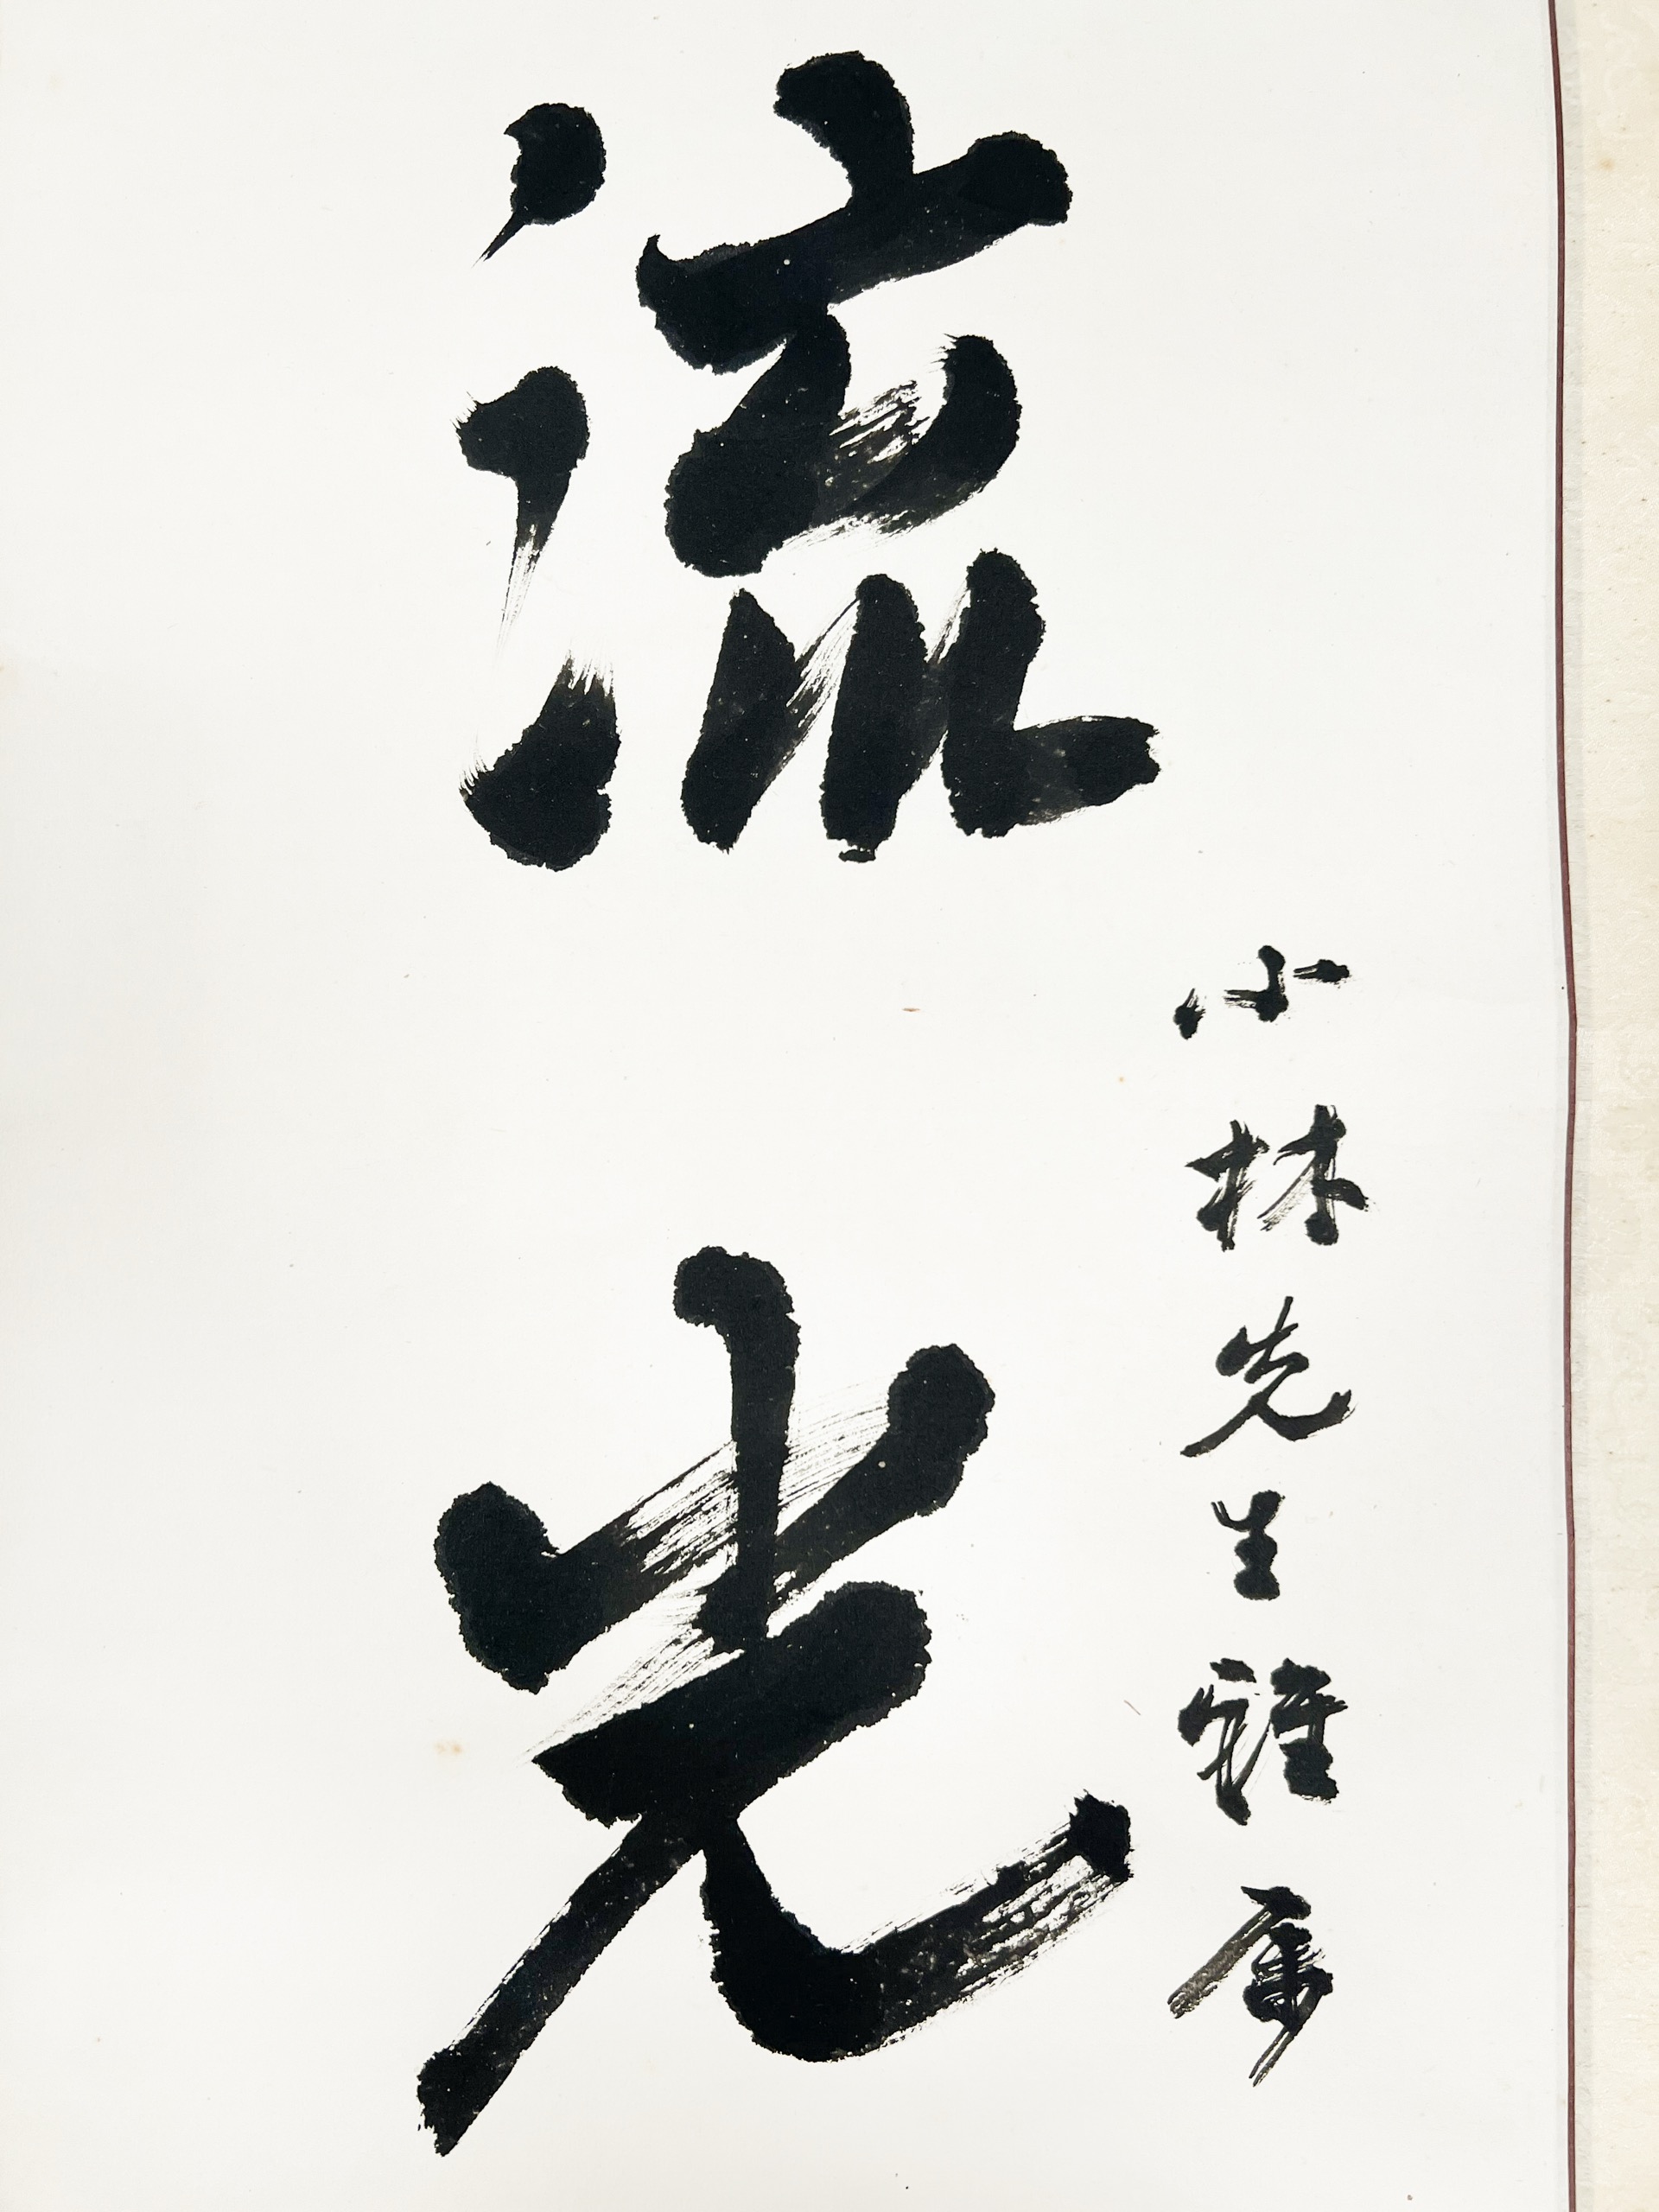 小林先生雅属
流光